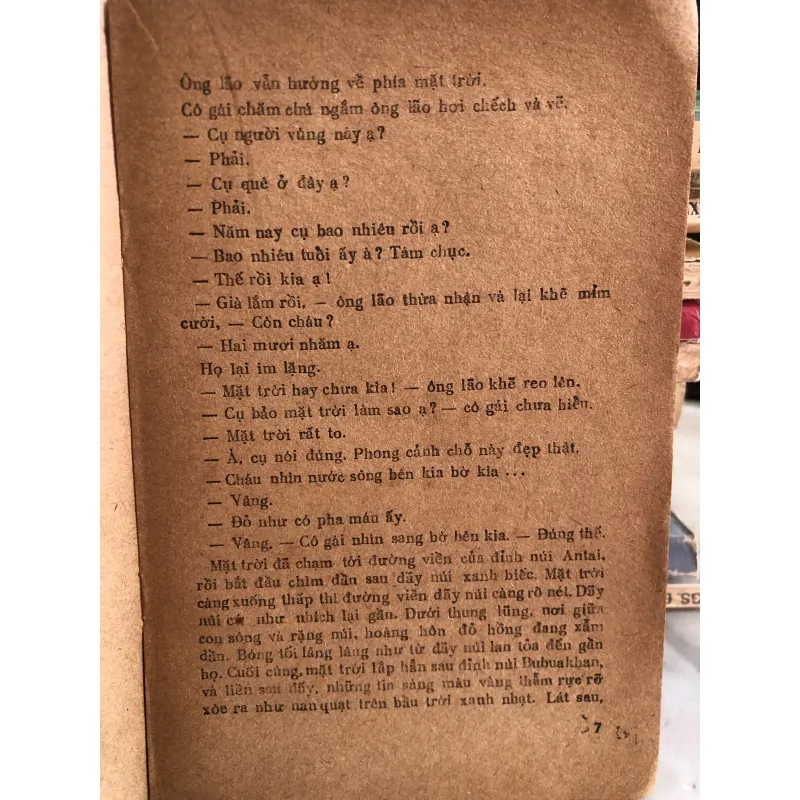 Ông lão vẫn hướng về phía mặt trời.
Cô gái chăm chú ngắm ông lão hơi chếch và vẽ.
— Cụ người vùng này ạ?
— Phải.
— Cụ quê ở đây ạ?
— Phải.
— Năm nay cụ bao nhiêu rồi ạ?
— Bao nhiêu tuổi ấy à? Tám chục.
— Thế rồi kia ạ!
— Già lắm rồi, — ông lão thừa nhận và lại khẽ mỉm
cười, — Còn cháu?
— Hai mươi nhăm ạ.
Họ lại im lặng.
— Mặt trời hay chưa kìa! — ông lão khẽ reo lên.
— Cụ bảo mặt trời làm sao ạ? — cô gái chưa hiểu.
— Mặt trời rất to.
— À, cụ nói đúng. Phong cảnh chỗ này đẹp thật.
— Cháu nhìn nước sông bên kia bờ kìa ...
— Vâng.
— Đỏ như có pha máu ấy.
— Vâng. — Cô gái nhìn sang bờ bên kia. — Đúng thế.
Mặt trời đã chạm tới đường viền của đỉnh núi Antai,
rồi bắt đầu chìm dần sau dãy núi xanh biếc. Mặt trời
càng xuống thấp thì đường viền dãy núi càng rõ nét. Dãy
núi cứ như nhích lại gần. Dưới thung lũng, nơi giữa
con sông và rặng núi, hoàng hôn đỏ hồng đang xẫm
dần. Bóng tối lâng lâng như từ dãy núi lan tỏa đến gần
họ. Cuối cùng, mặt trời lấp hẳn sau đỉnh núi Bubuakhan,
và liền sau đấy, những tia sáng màu vàng thẫm rực rỡ
xòe ra như nan quạt trên bầu trời xanh nhạt. Lát sau,
7